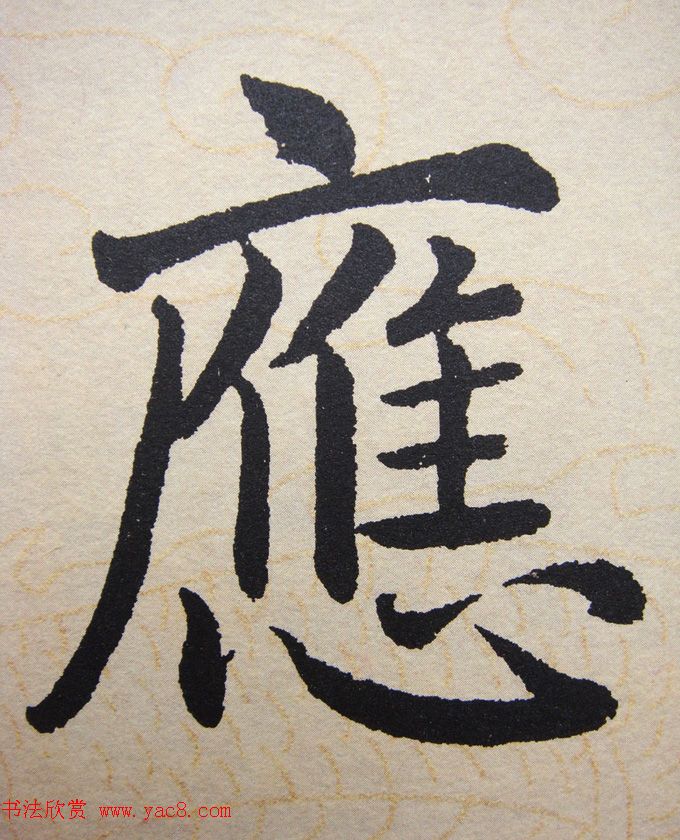 應
书法欣赏 www.yac8.com